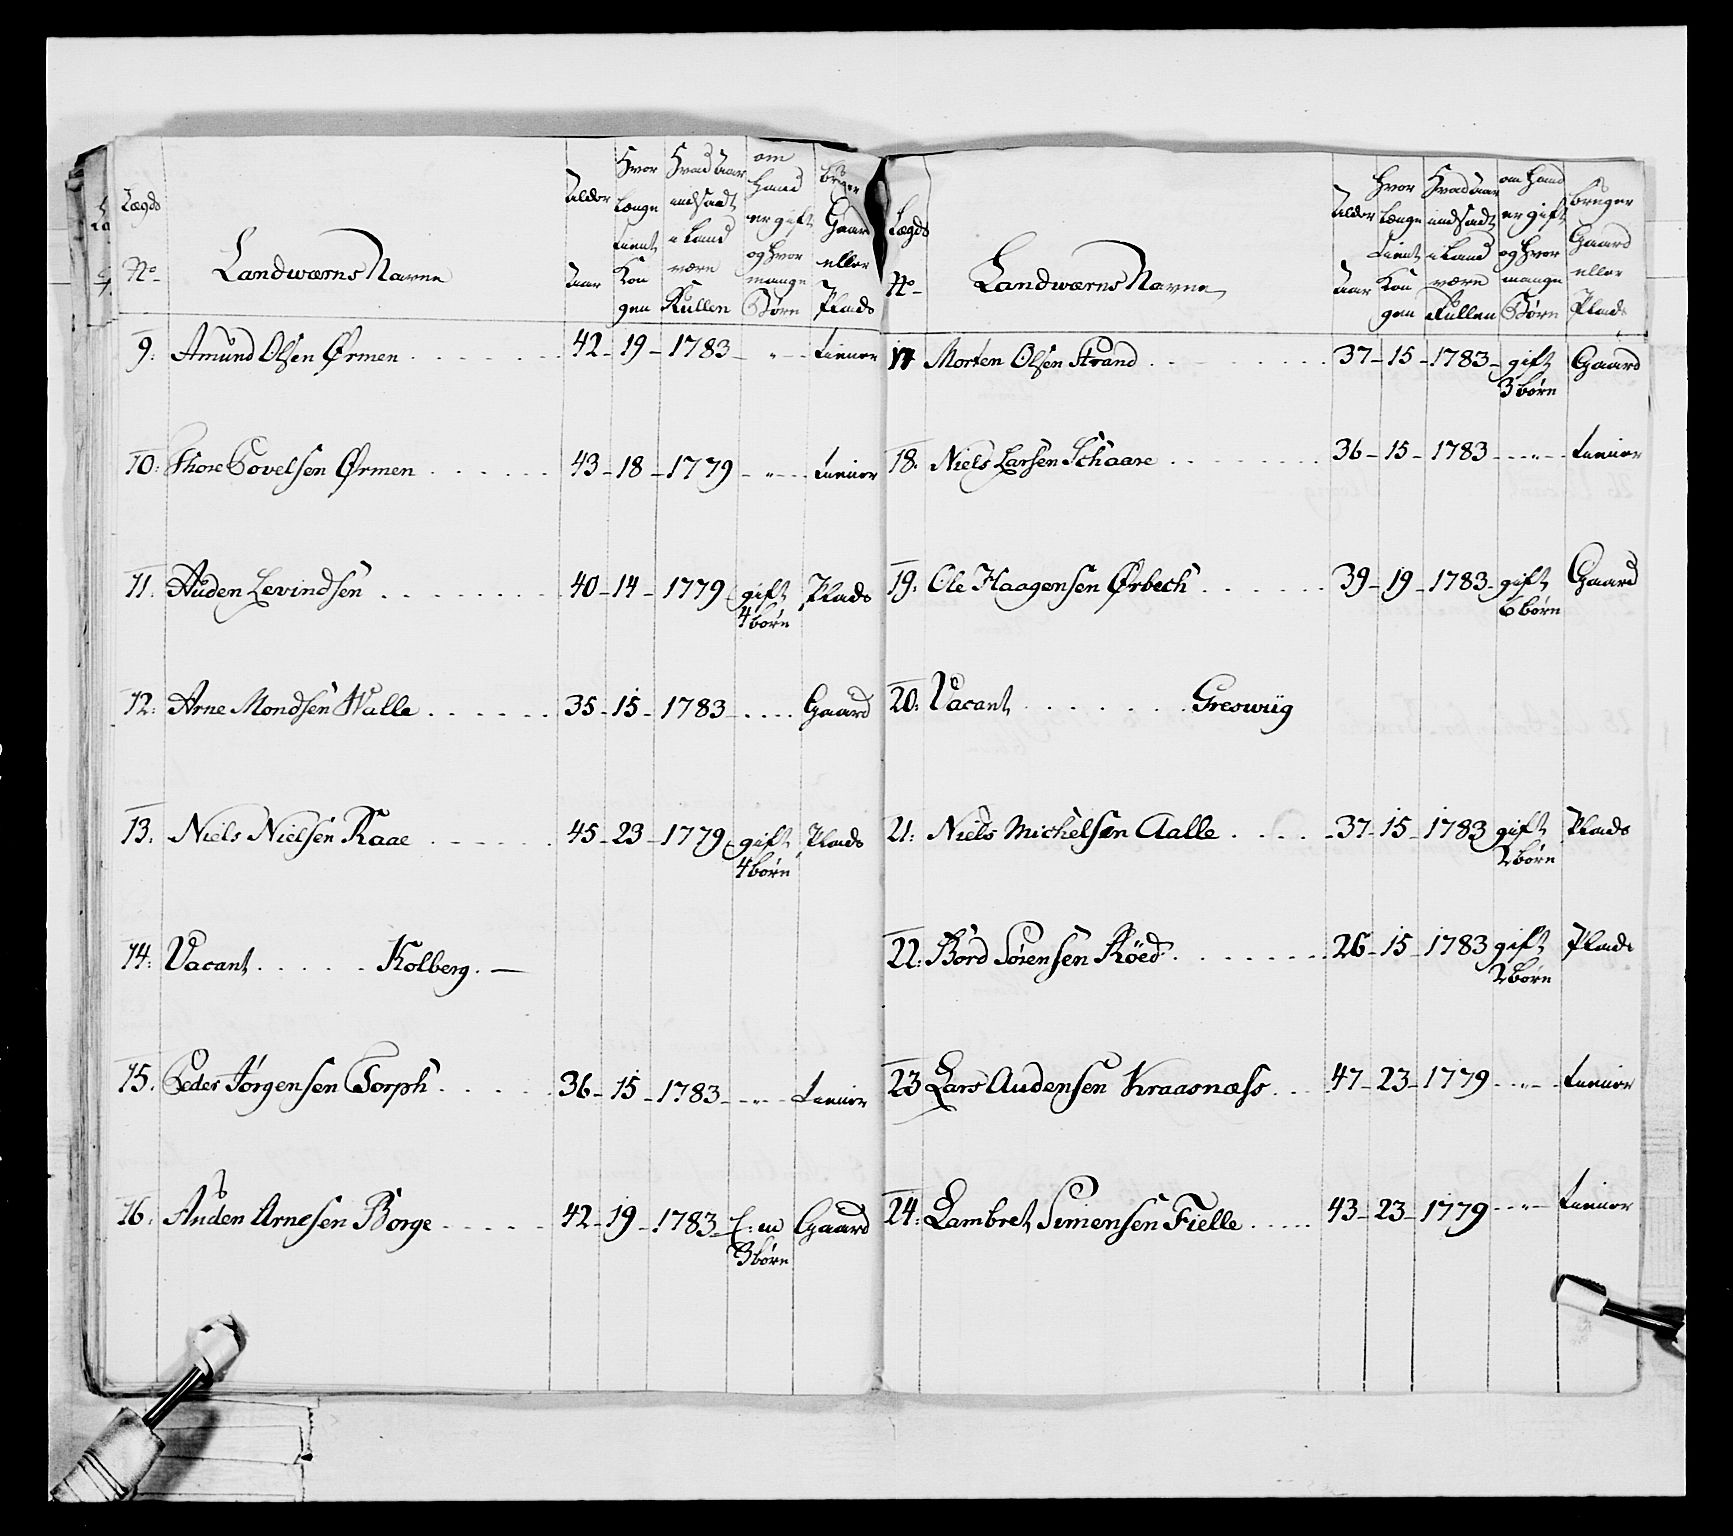 Lægds No. Landwærns Navne Alder Aar Hvor længe tient Kongen Hvad Aar indsadt i Landvære Rullen om Hand er gift og hvor mange Børn bruger Gaard eller Plads
9. Amund Olsen Ørmen . . . . . . . 42 - 19 - 1783 - " - tiener
10: Thore Povelsen Ørmen . . . . . . 43 - 18 - 1779 - " - tiener
11. Auden Levindsen . . . . . . . . 40 - 14 - 1779 gift Plads
4 børn
12: Arne Mondsen Walle . . . . . . 35 - 15 - 1783 - . . . . Gaard
13. Niels Nielsen Raae . . . . . . 45 - 23 - 1779 gift Plads
4 børn
14: Vacant . . . . . Kolberg. —
15. Peder Jørgensen Torph . . . . . 36 - 15 - 1783 - " - tiener
16. Auden Arnesen Borge . . . . . 42 - 19 - 1783 - E: m Gaard
3 børn
Lægds No. Landwærns Navne Alder Aar Hvor længe tient Kongen Hvad Aar indsadt i Landvære Rullen om Hand er gift og hvor mange Børn bruger Gaard eller Plads
17 Morten Olsen Strand . . . . . . . 37 - 15 - 1783 - gift Gaard
3 børn
18. Niels Larsen Schaare . . . . . . . 36 - 15 - 1783 - " - tiener
19. Ole Haagensen Ørbech . . . . . . 39 - 19 - 1783 - gift Gaard
6 børn
20: Vacant . . . . . . . Greswiig
21: Niels Michelsen Aalle . . . . . 37 - 15 - 1783 gift Plads
2 børn
22: Bord Sørensen Röed . . . . . . . . 26 - 15 - 1783 gift Plads
2 børn
23 Lars Audensen Kraasnæss . . . 47 - 23 - 1779 - " - tiener
24: Lambret Simensen Fielle . . . . . 43 - 23 - 1779 - " - tiener